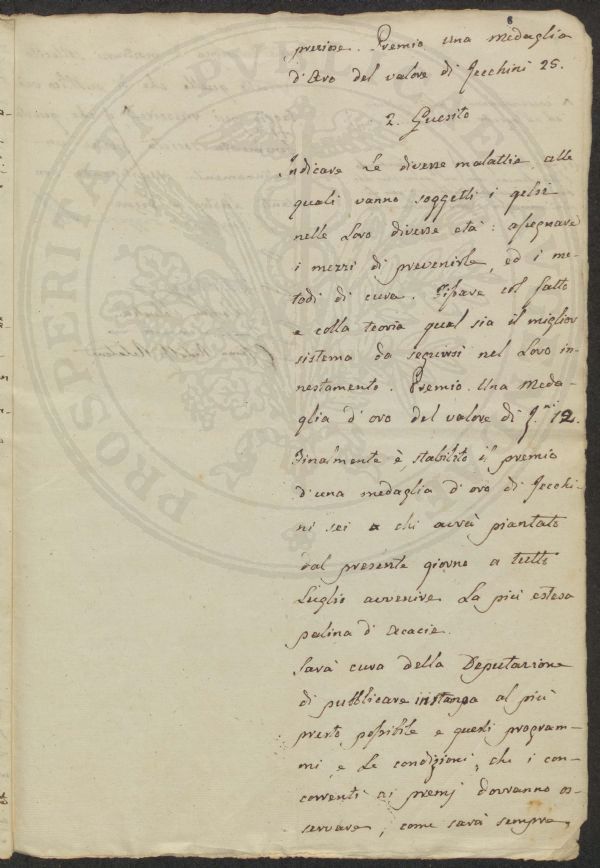 8
prezione. Premio una medaglia
d'Oro del valore di Zecchini 25.
2. Quesito
Indicare le diverse malattie alle
quali vanno soggetti i gelsi
nelle loro diverse età: assegnare
i mezzi di prevenirle, ed i me-
todi di cura. Fissare col fatto
e colla teoria qual sia il miglior
sistema da seguirsi nel loro in-
nestamento. Premio. Una meda-
glia d'oro del valore di Z.ni 12.
Finalmente è stabilito il premio
d'una medaglia d'oro di Zecchi-
ni sei a chi avrà piantato
dal presente giorno a tutto
Luglio avvenire la più estesa
palina d'Acacie.
Sarà cura della Deputazione
di pubblicare in stampa al più
presto possibile e questi program-
mi e le condizioni, che i con-
correnti ai premj dovranno os-
servare, come sarà sempre
PROSPERITATI PUBL